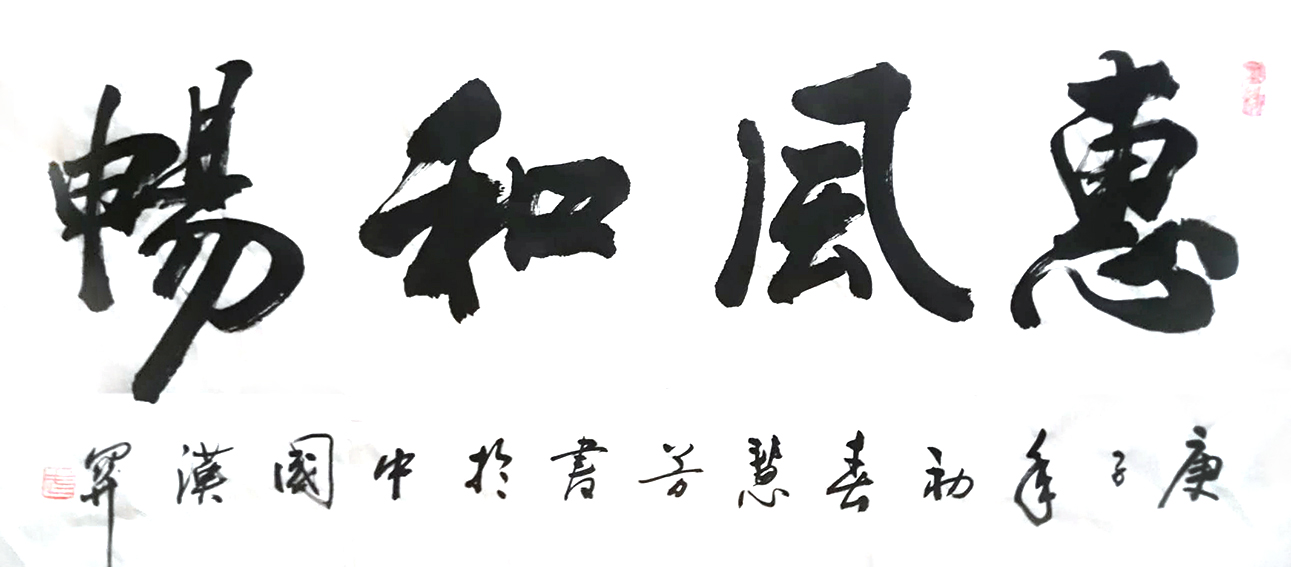 惠風和暢
庚子年初春慧芳書於中國漢關